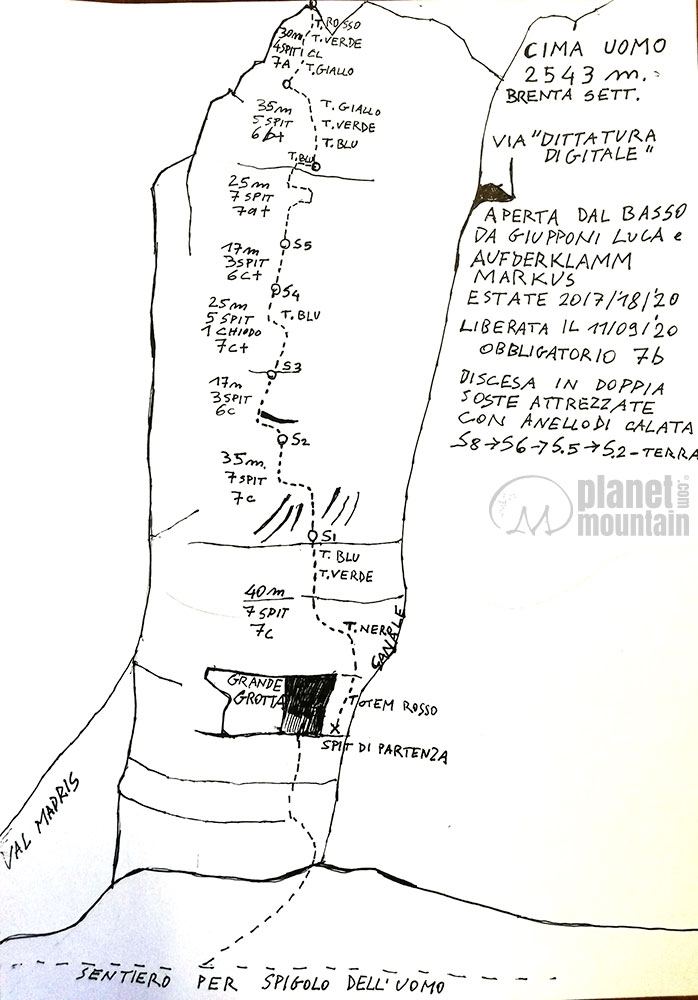 T. ROSSO
T. VERDE
30m
4 SPIT 1 CL
7A
T. GIALLO
35m
5 SPIT
6b+
T. GIALLO
T. VERDE
T. BLU
T. BLU
25m
7 SPIT
7a+
S5
17m
3 SPIT
6C+
S4
25m
5 SPIT
1 CHIODO
7C+
T. BLU
S3
17m
3 SPIT
6C
S2
35m.
7 SPIT
7C
S1
T. BLU
T. VERDE
40m
7 SPIT
7C
T. NERO
CANALE
GRANDE
GROTTA
TOTEM ROSSO
X
SPIT DI PARTENZA
VAL MADRIS
SENTIERO PER SPIGOLO DELL'UOMO
CIMA UOMO
2543 m.
BRENTA SETT.
VIA "DITTATURA
DIGITALE"
APERTA DAL BASSO
DA GIUPPONI LUCA e
AUFDERKLAMM
MARKUS
ESTATE 2017/'18/'20
LIBERATA IL 11/09/'20
OBBLIGATORIO 7b
DISCESA IN DOPPIA
SOSTE ATTREZZATE
CON ANELLO DI CALATA
S8→S6→S.5→S.2-TERRA
planet
mountain
.com